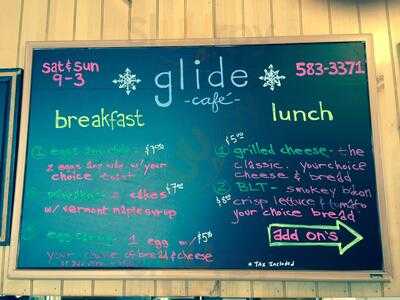 sat & sun
9-3
glide
-café-
583-3371
breakfast
lunch
$7.50
2 eggs w/ your
choice toast
cakes $7.00
w/ vermont maple syrup
1 egg w/ $5.00
your choice of bread & cheese
$5.00
1 grilled cheese- the
classic. your choice
cheese & bread
2 BLT- smokey bacon
$8.00 crisp lettuce & tomato
your choice bread
add on's
* Tax Included